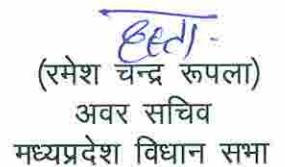 हस्ता-
(रमेश चन्द्र रूपला)
अवर सचिव
मध्यप्रदेश विधान सभा